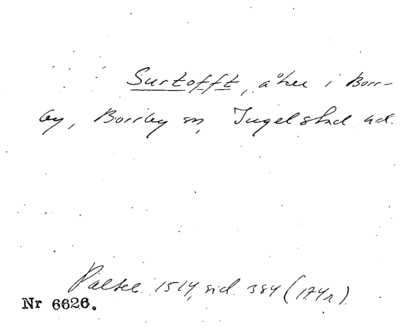 Surtofft, åker i Borr-
by, Borrby sn, Ingelstad hd.
Palteb. 1514, sid. 384 (174r)
Nr 6626.